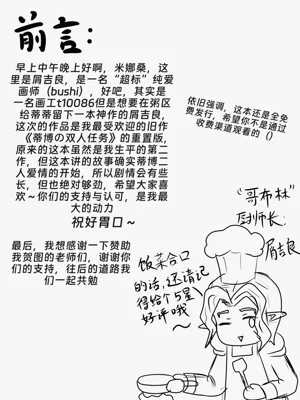 前言：
早上中午晚上好啊，米娜桑，这
里是屑吉良，是一名“超标”纯爱
画师（bushi），好吧，其实是
一名画工t10086但是想要在粥区
给蒂蒂留下一本神作的屑吉良，
这次的作品是我最受欢迎的旧作
《蒂博の双人任务》的重置版，
原来的这本虽然是我生平的第二
作，但这本讲的故事确实蒂博二
人爱情的开始，所以剧情会有些
长，但也绝对够劲，希望大家喜
欢~你们的支持与认可，是我最
大的动力
祝好胃口~
最后，我想感谢一下赞助
我贺图的老师们，谢谢你
们的支持，往后的道路我
们一起共勉
依旧强调，这本还是全免
费发行，希望你不是通过
收费渠道观看的（）
“哥布林”
厨师长：
屑吉良
饭菜合口
的话，还请记
得给个5星
好评哦~